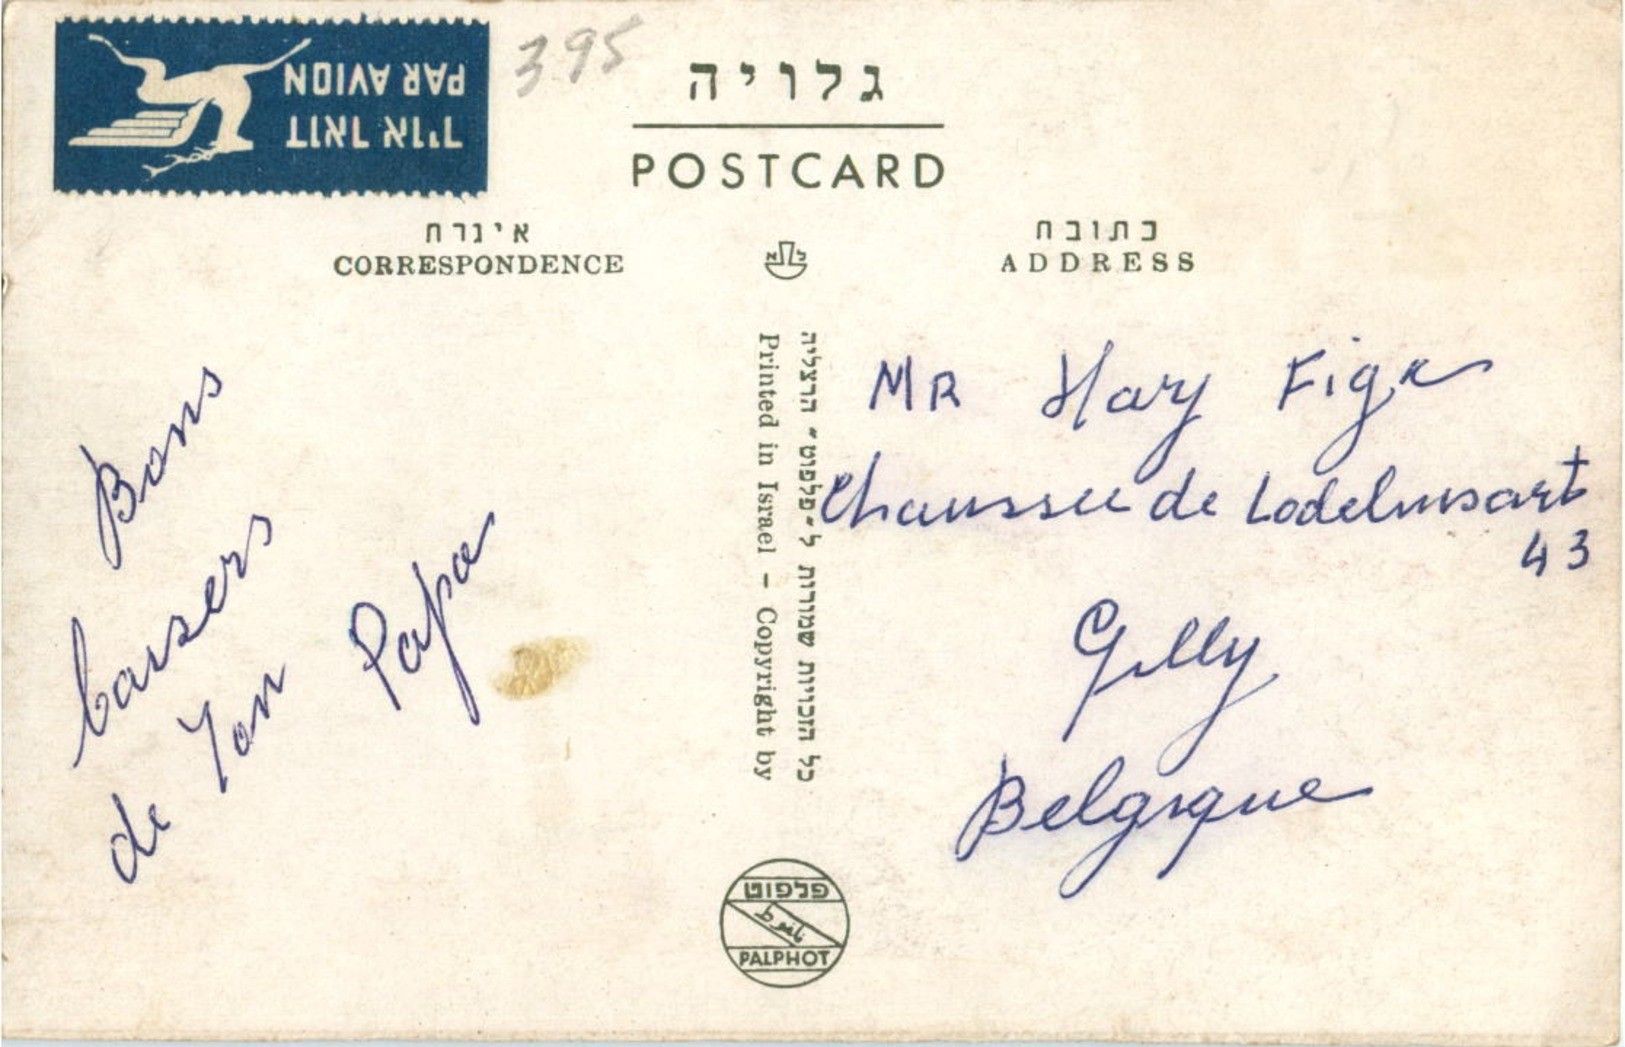 PAR AVION
דואר אויר
395
גלויה
POSTCARD
איגרת
CORRESPONDENCE
כתובת
ADDRESS
Bons
baisers
de Ton Papa
כל הזכויות שמורות ל״פלפוט״ הרצליה
Printed in Israel - Copyright by
MR Hary
Chaussee de Lodelinsart
43
Gilly
Belgique
פלפוט
PALPHOT